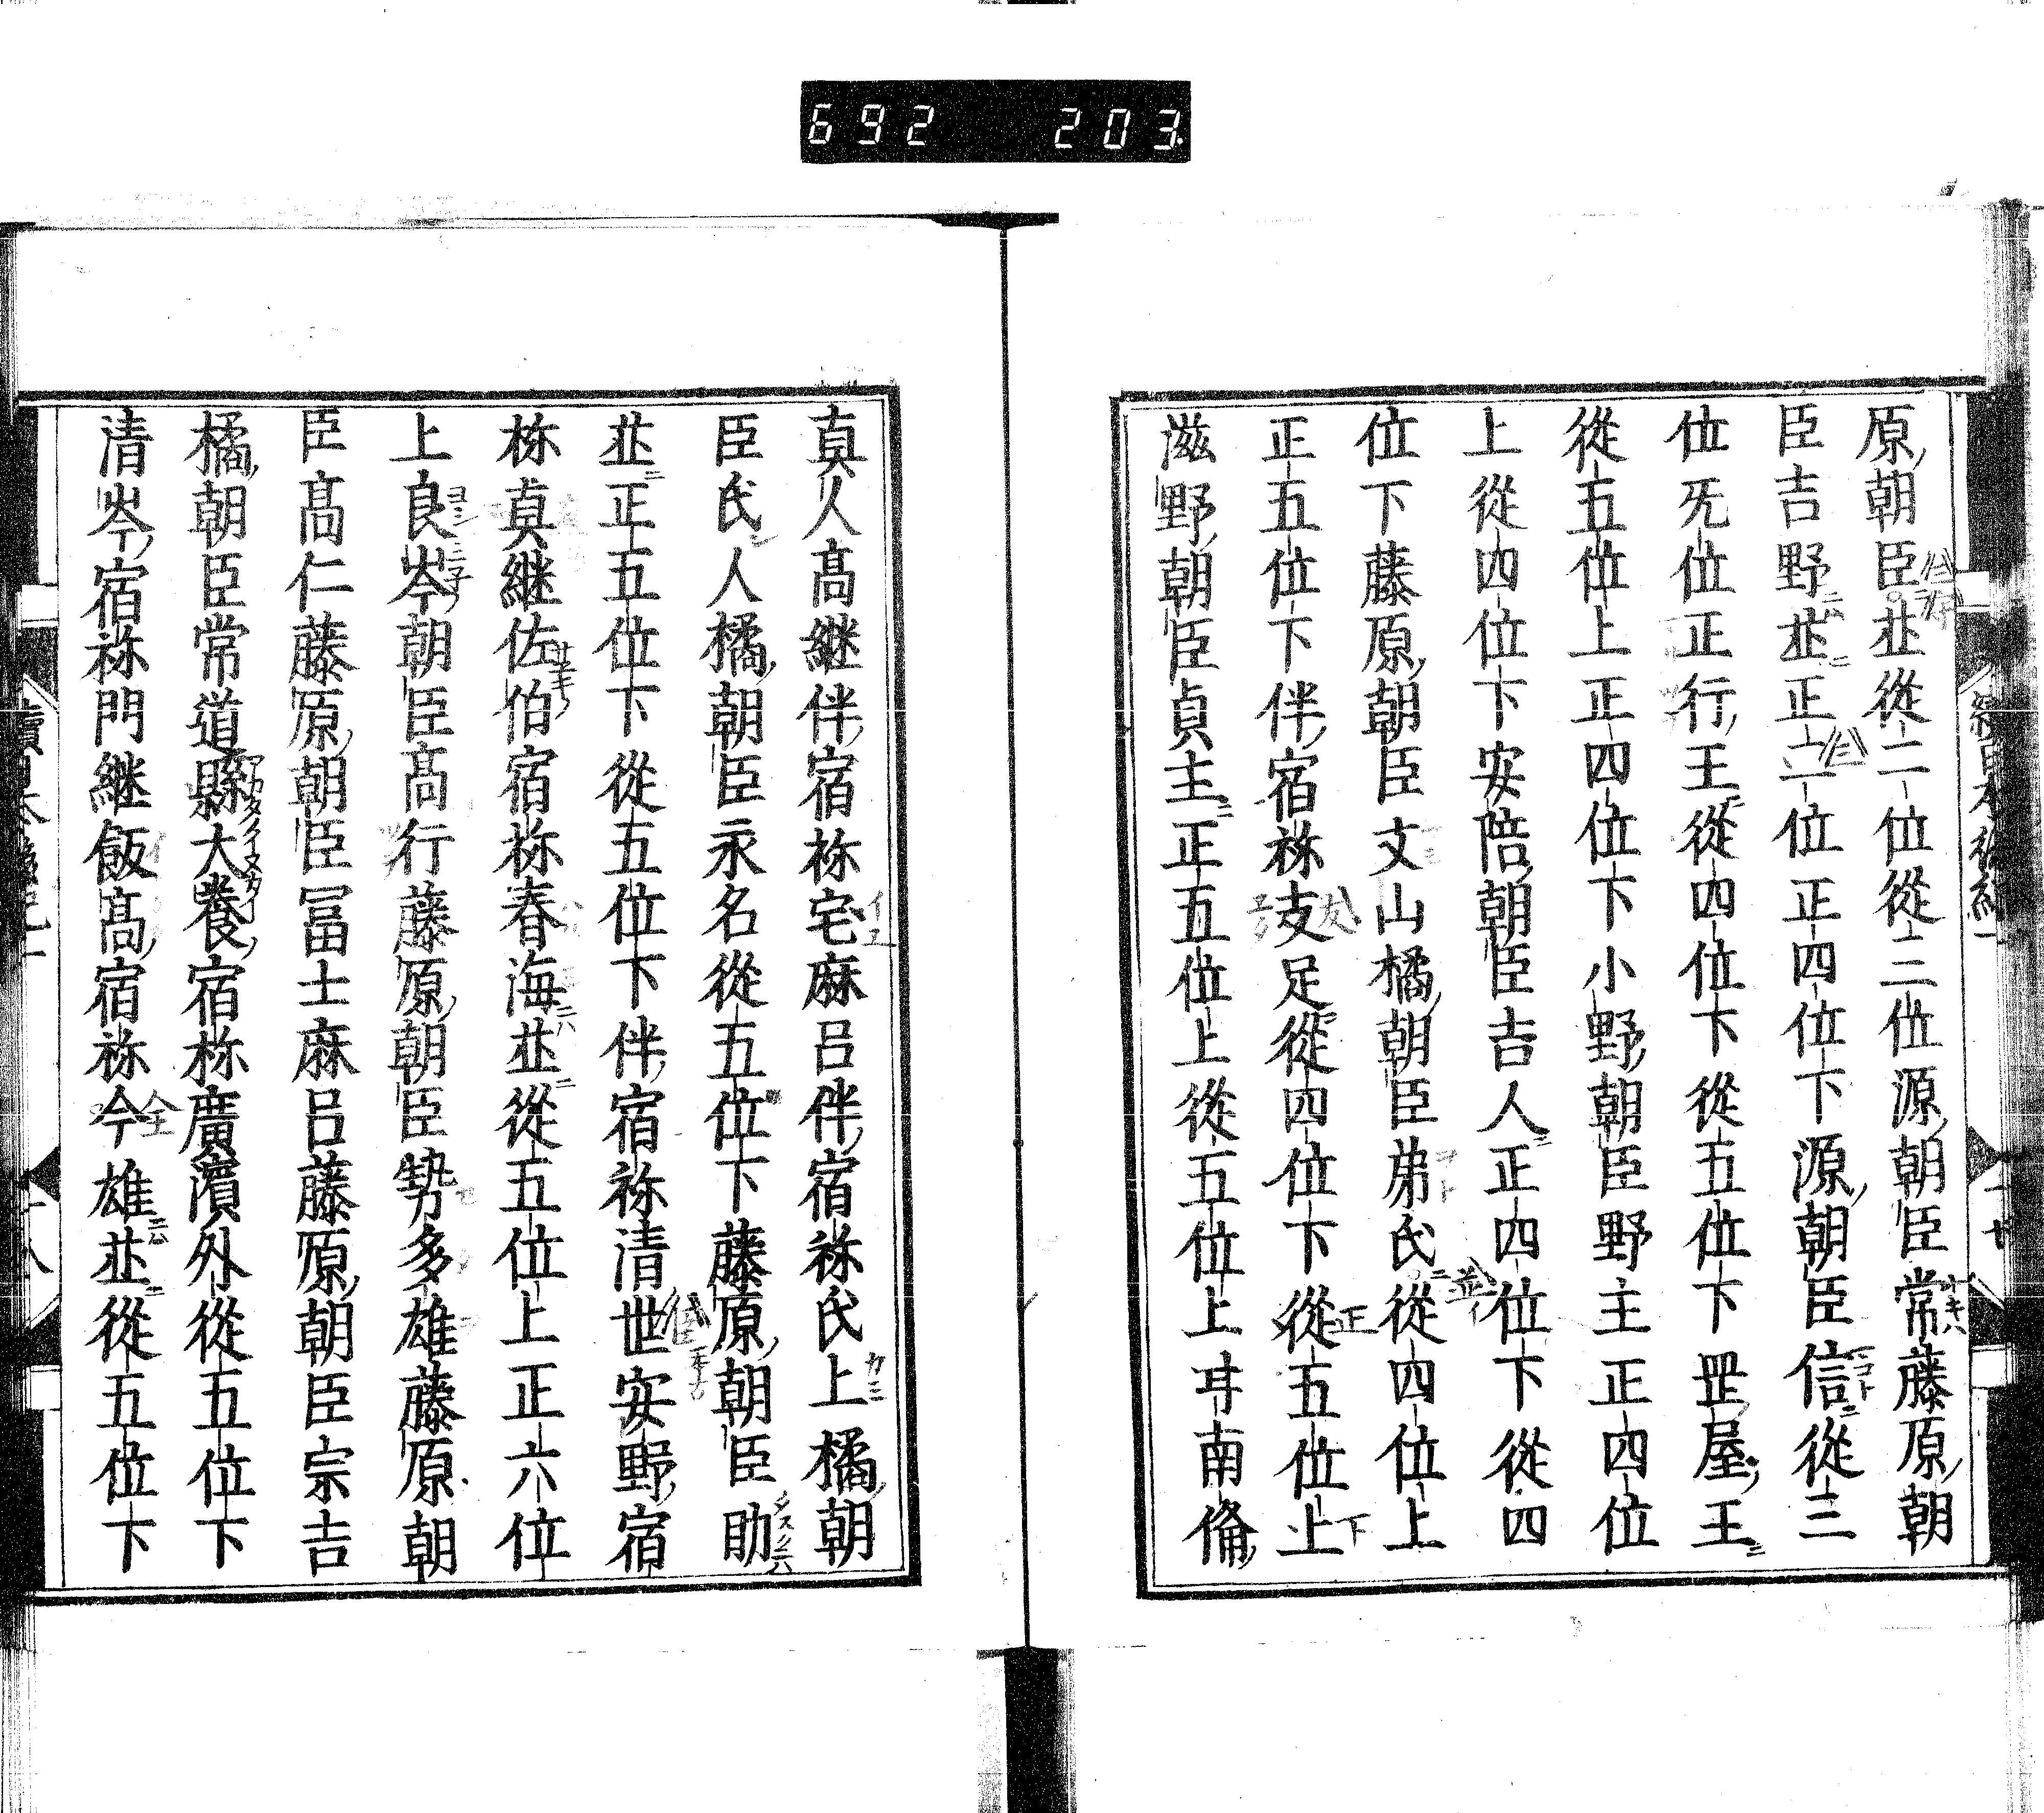 692 203
原朝臣並從二位從三位源朝臣常藤原朝
臣吉野並正三位正四位下源朝臣信從三
位旡位正行王從四位下從五位下罡屋王
從五位上正四位下小野朝臣野主正四位
上從四位下安陪朝臣吉人正四位下從四
位下藤原朝臣文山橘朝臣弟氏從四位上
正五位下伴宿祢支足從四位下從五位上
滋野朝臣貞主正五位上從五位上丼南備
真人髙継伴宿祢宅麻呂伴宿祢氏上橘朝
臣氏人橘朝臣永名從五位下藤原朝臣助
並正五位下從五位下伴宿祢清世安野宿
祢真継佐伯宿祢春海並從五位上正六位
上良岑朝臣髙行藤原朝臣勢多雄藤原朝
臣髙仁藤原朝臣冨士麻呂藤原朝臣宗吉
橘朝臣常道縣大養宿祢廣濱外從五位下
清岑宿祢門継飯髙宿祢今雄並從五位下